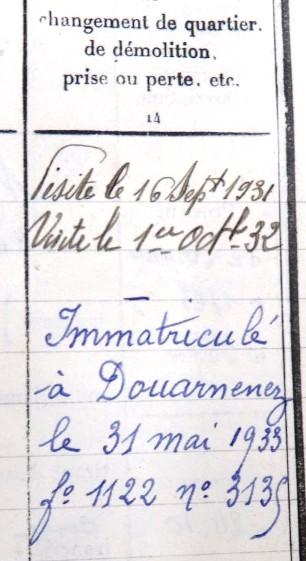 changement de quartier.
de démolition,
prise ou perte, etc.
14
Visite le 16 Sept 1931
Visite le 1er Octbre 32
Immatriculé
à Douarnenez
le 31 mai 1933
fo 1122 no 3135